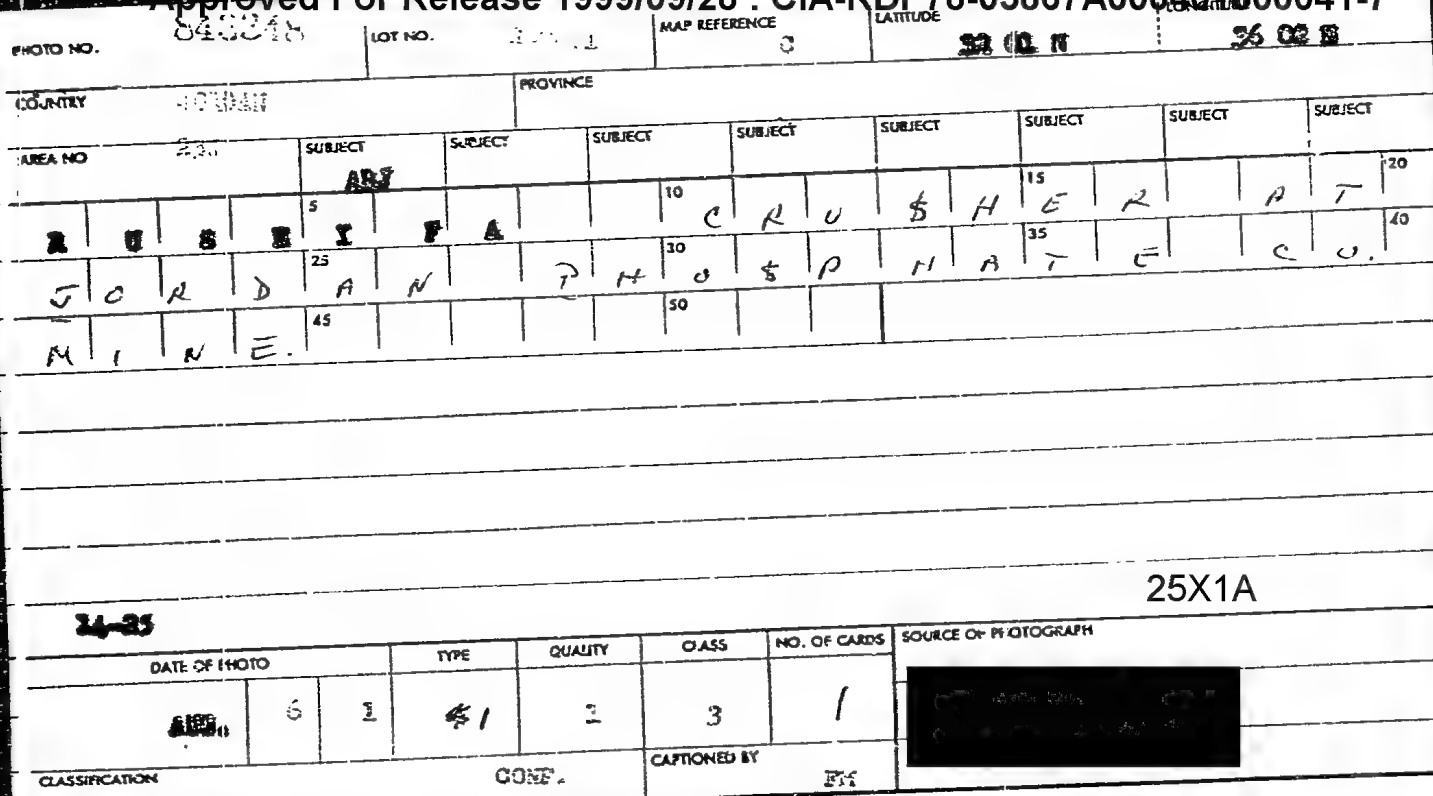 Approved For Release 1999/09/28 : CIA-RDP78-03867A000
PHOTO NO. 843248 LOT NO. MAP REFERENCE C LATITUDE N LONGITUDE 36 02 E
COUNTRY JORDAN PROVINCE
AREA NO SUBJECT ARJ SUBJECT SUBJECT SUBJECT SUBJECT SUBJECT SUBJECT SUBJECT
RUSEIFA CRU$HER AT
JORDAN PHO$PHATE CO.
MINE.
5 10 15 20
25 30 35 40
45 50
25X1A
34-35
DATE OF PHOTO TYPE QUALITY CLASS NO. OF CARDS SOURCE OF PHOTOGRAPH
AUG. 6 1 1 2 3 1
CLASSIFICATION CONF. CAPTIONED BY FM